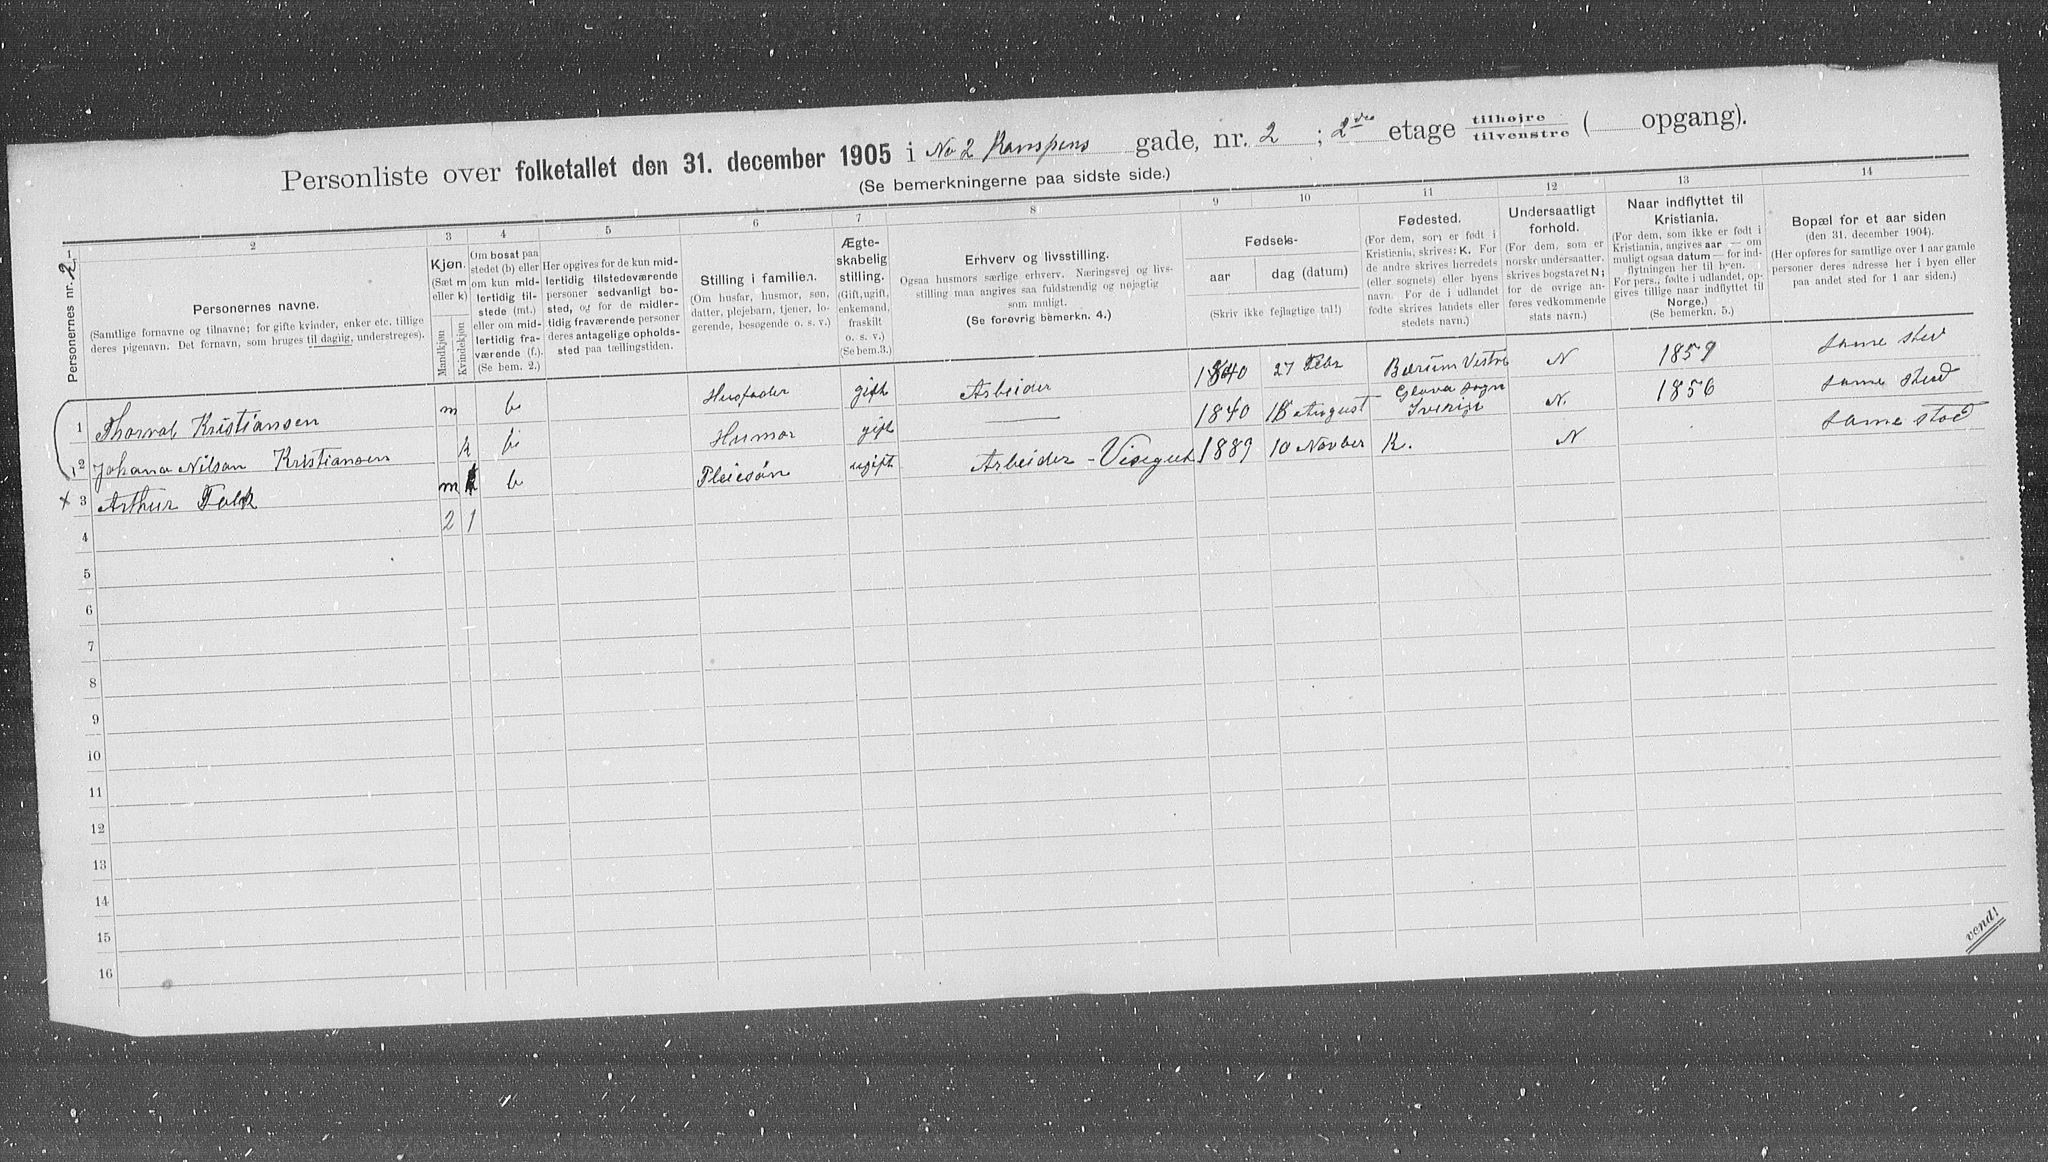 Personliste over folketallet den 31. december 1905 i No 2 Kanspens gade, nr. 2 ; 2den etage tilhøjre tilvenstre ( opgang).
(Se bemerkningerne paa sidste side.)
1 2 3 4 5 6 7 8 9 10 11 12 13 14
Personernes nr. 2
Personernes navne.
(Samtlige fornavne og tilnavne; for gifte kvinder, enker etc. tillige
deres pigenavn. Det fornavn, som bruges til daglig, understreges).
Kjøn.
(Sæt m
eller k)
Mandkjøn
Kvindekjøn
Om bosat paa
stedet (b) eller
om kun mid-
lertidig til-
stede (mt.)
eller om mid-
lertidig fra-
værende (f.)
(Se bem. 2.)
Her opgives for de kun mid-
lertidig tilstedeværende
personer sedvanligt bo-
sted, og for de midler-
tidig fraværende personer
deres antagelige opholds-
sted paa tællingstiden.
Stilling i familien.
(Om husfar, husmor, søn,
datter, plejebarn, tjener, lo-
gerende, besøgende o. s. v.)
Ægte-
skabelig
stilling.
(Gift, ugift,
enkemand,
fraskilt
o. s. v.)
(Se bem. 3.)
Erhverv og livsstilling.
Ogsaa husmors særlige erhverv. Næringsvej og livs-
stilling maa angives saa fuldstændig og nøjagtig
som muligt.
(Se forøvrig bemerkn. 4.)
Fødsels-
aar dag (datum)
(Skriv ikke fejlagtige tal!)
Fødested.
(For dem, som er født i
Kristiania, skrives: K. For
de andre skrives herredets
(eller sognets) eller byens
navn. For de i udlandet
fødte skrives landets eller
stedets navn.)
Undersaatligt
forhold.
(For dem, som er
norske undersaatter,
skrives bogstavet N;
for de øvrige an-
føres vedkommende
stats navn.)
Naar indflyttet til
Kristiania.
(For dem, som ikke er født i
Kristiania, angives aar — om
muligt ogsaa datum — for ind-
flytningen her til byen.
For pers., fødte i udlandet, op-
gives tillige naar indflyttet til
Norge.)
(Se bemerkn. 5.)
Bopæl for et aar siden
(den 31. december 1904).
(Her opføres for samtlige over 1 aar gamle
personer deres adresse her i byen eller
paa andet sted for 1 aar siden.)
1 Thorval Kristiansen m b Husfader gift Arbeider 1840 27 Febr Bærum Vestre N 1859 same sted
2 Johana Nilsen Kristiansen k b Humor gift — 1840 15 August Glava Sogn Sverige N. 1856 same sted
x 3 Arthur Falk m b Pleiesøn ugift Arbeider - Visegut 1889 10 Novber K. N same sted
4 2 1
5
6
7
8
9
10
11
12
13
14
15
16
vend!